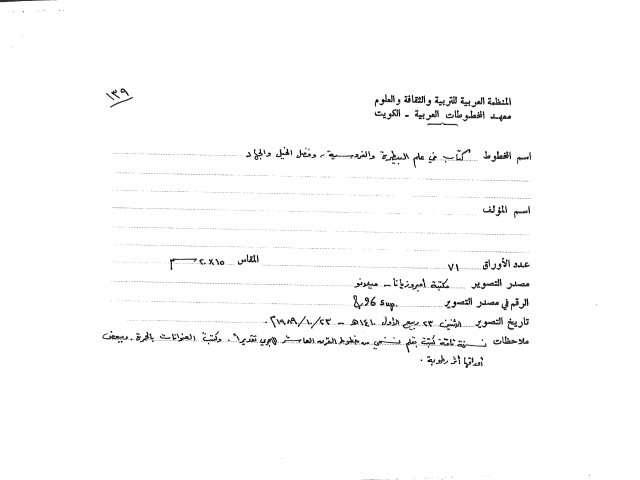 ١٣٩
المنظمة العربية للتربية والثقافة والعلوم
معهد المخطوطات العربية - الكويت
اسم المخطوط كتاب في علم البيطرة والفروسية، وفضل الخيل والجهاد
اسم المؤلف
عدد الأوراق ٧١ المقاس ١٥×٢٠ سم
مصدر التصوير مكتبة أمبروزيانا - ميلانو
الرقم في مصدر التصوير &96 sup.
تاريخ التصوير الاثنين ٢٣ ربيع الأول ١٤١٠هـ - ٢٣/١٠/١٩٨٩م.
ملاحظات نسخة تامة كتبت بقلم نسخي من خطوط القرن العاشر الهجري تقديراً. وكتبت العنوانات بالحمرة. وببعض
أوراقها أثر رطوبة.